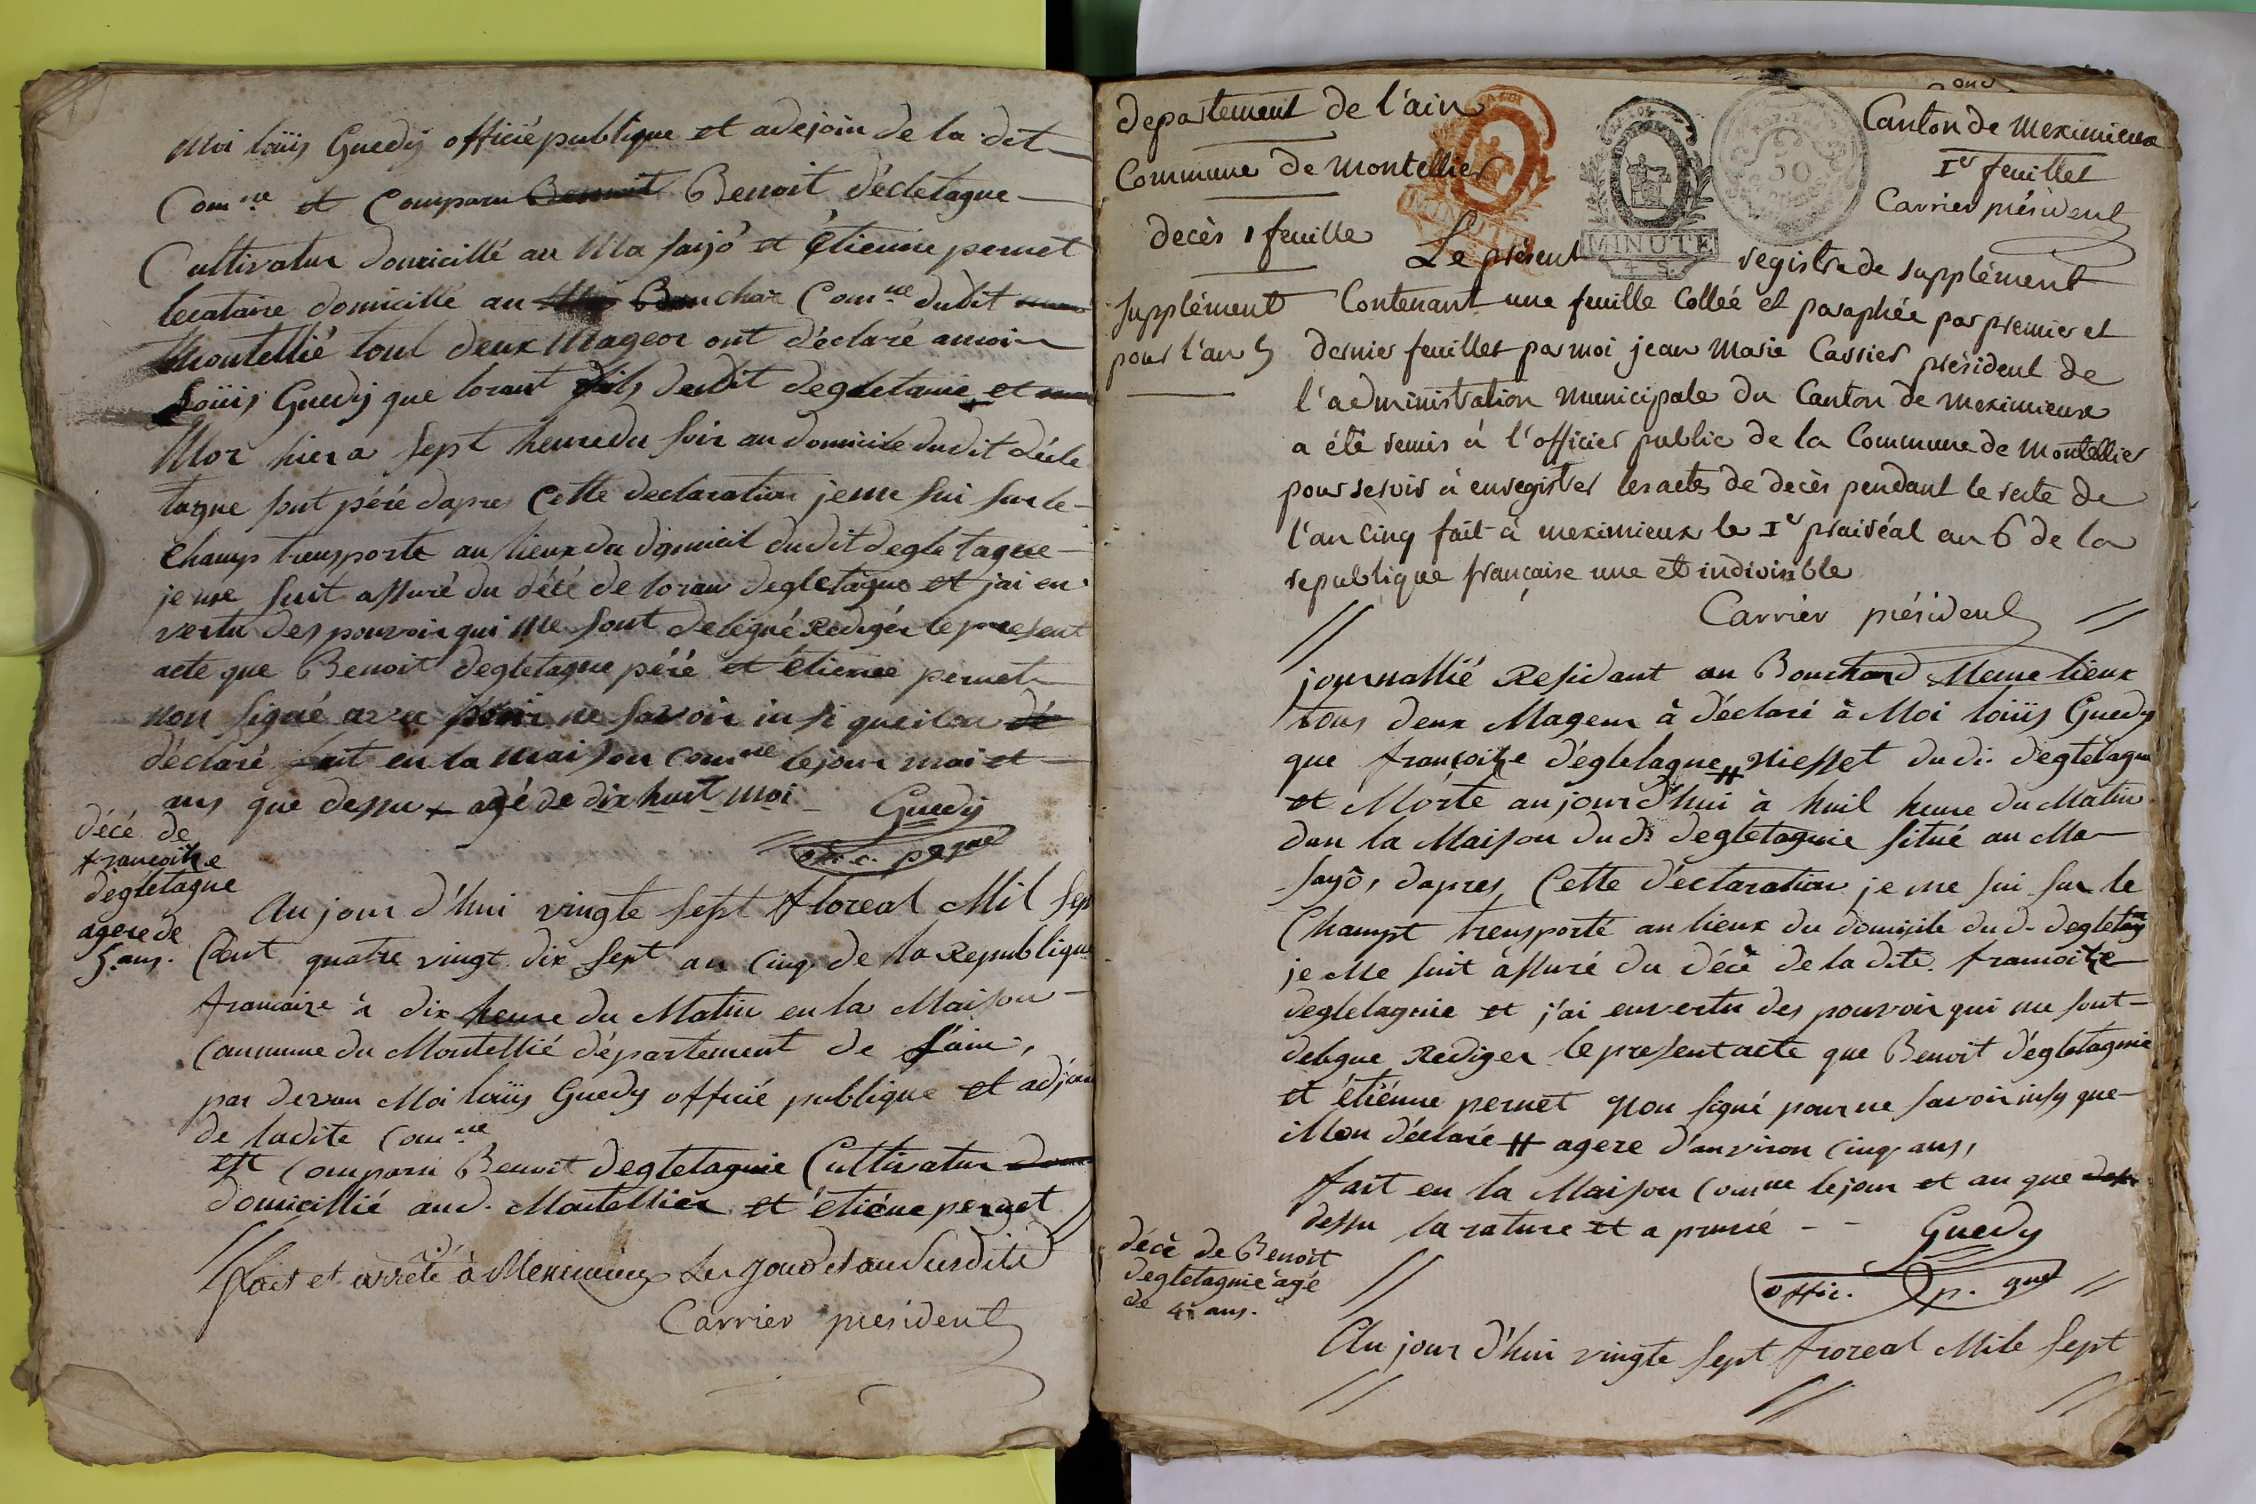 Moi loüis Guedy officié publique et adejoin de la dit
Com.ne et Comparu Benoit d'écletagne
Cultivatur domicillé au Ma sayô et Étienne pernet
locataire domicillé au Bouchar Com.ne dudit
Montellié tout deux Mageor ont déclaré a moi
Loüis Guedy que lorant fils dudit degletanie et
Mor hier a sept heure du soir au domicile dudit décle
tagne sout péré dapres Cette declaration je me sui sur le
Champ transporte au lieux du domicil dudit degletagne
je me suit assuré du décé de loran degletagne et j'ai en
vertu des pouvoir qui me sont delegué Redigér le present
acte que Benoit degletagne péré et étienne pernet
non signé ne savoir in si que ilon dé
déclaré fait en la maison Com.ne le jour moi et
ans que dessu + agé de dix huit moi
Guedy
décé de
francoise
degletagne
agere de
5 ans.
Au jour d'hui vingte sept floreal Mil sept
Cent quatre vingt dix sept an Cinq de la Republique
francaize à dix heure du Matin en la Maison
Commune du Montellié département de l'ain,
par devan Moi loüis Guedy officié publique et adjoin
de ladite Com.ne
est Comparu Benoit degletagnie Cultivatur
domicillié aud. Montelliér et étiéne pernet
fait et arrêté à Meximieux Les jour et an Susdits
Carrier president
departement de l'ain
Commune de montellier
decès 1 feuille
supplément
pour l'an 5
Canton de meximieux
Ier feuillet
Carrier président
MINUTE
Le présent registre de supplément
Contenant une feuille Collée et paraphée par premier et
dernier feuillet par moi jean Marie Carrier président de
l'administration municipale du Canton de meximieux
a été remis à l'officier public de la Commune de montellier
pour servir à enregistrer les actes de decès pendant le reste de
l'an cinq fait à meximieux le Ier prairéal an 6 de la
republique française une et indivisible
Carrier président
journallié Residant au Bouchard Meme lieux
tous deux Mageur à déclaré à Moi loüis Guedy
que françoize dégletagne # Niesset dudi. degletagne
et Morte aujourd'hui à huil heure du Matin
dan la Maison du d. degletagnie situé au Ma
sayô, dapres Cette déclaration je me sui sur le
Champt transporté au lieux du domicile dud. degletag
je Me suit assuré du décé de la dite. francoize
degletagnie et j'ai envertu des pouvoir qui me sont
delegue Rediger le present acte que Benoit dégletagnie
et étiénne pernet Non signé pour ne savoir insy que
ilon déclaré # agere d'anviron Cinq ans,
fait en la Maison Com.ne le jour et an que
dessu la rature et a prové
Guedy
offic. p. que
décè de Benoit
degletagnie agé
de 4 ans.
Au jour d'hui vingte sept floreal Mile sept